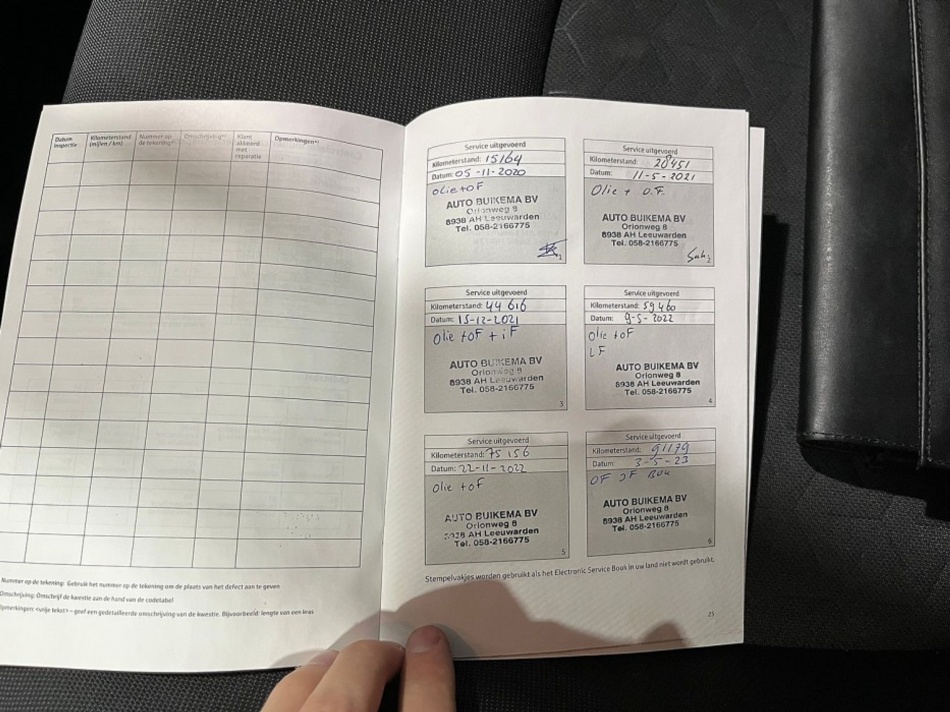 Datum inspectie
Kilometerstand (mijlen / km)
Nummer op de tekening*)
Omschrijving**)
Klant akkoord met reparatie
Opmerkingen**)
Nummer op de tekening: Gebruik het nummer op de tekening om de plaats van het defect aan te geven
Omschrijving: Omschrijf de kwestie aan de hand van de codetabel
Opmerkingen: <vrije tekst> – geef een gedetailleerde omschrijving van de kwestie. Bijvoorbeeld: lengte van een kras
Service uitgevoerd
Kilometerstand: 15164
Datum: 05-11-2020
Olie+oF
AUTO BUIKEMA BV
Orionweg 8
8938 AH Leeuwarden
Tel. 058-2166775
1
Service uitgevoerd
Kilometerstand: 28451
Datum: 11-5-2021
Olie + O.F.
AUTO BUIKEMA BV
Orionweg 8
8938 AH Leeuwarden
Tel. 058-2166775
2
Service uitgevoerd
Kilometerstand: 44 616
Datum: 15-12-2021
Olie +oF + iF
AUTO BUIKEMA BV
Orionweg 8
8938 AH Leeuwarden
Tel. 058-2166775
3
Service uitgevoerd
Kilometerstand: 59460
Datum: 9-5-2022
Olie +oF
LF
AUTO BUIKEMA BV
Orionweg 8
8938 AH Leeuwarden
Tel. 058-2166775
4
Service uitgevoerd
Kilometerstand: 75 156
Datum: 22-11-2022
Olie +oF
AUTO BUIKEMA BV
Orionweg 8
8938 AH Leeuwarden
Tel. 058-2166775
5
Service uitgevoerd
Kilometerstand: 91179
Datum: 3-5-23
OF JF
AUTO BUIKEMA BV
Orionweg 8
8938 AH Leeuwarden
Tel. 058-2166775
6
Stempelvakjes worden gebruikt als het Electronic Service Book in uw land niet wordt gebruikt.
25